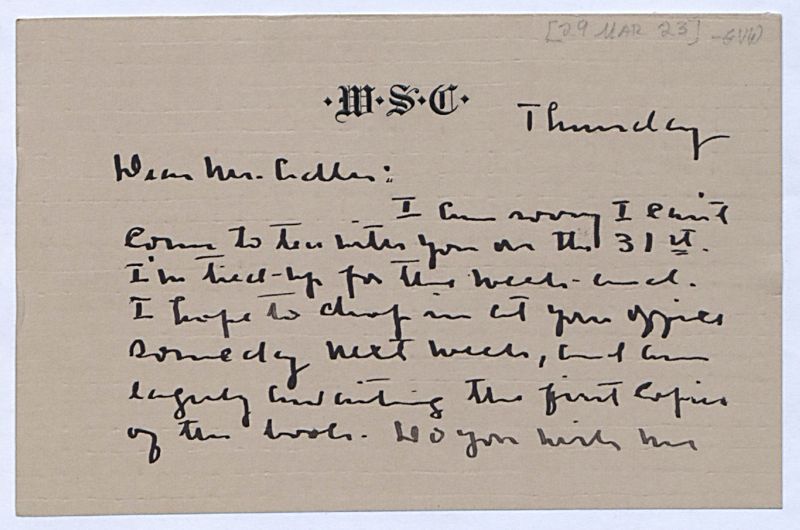 [29 MAR 23] -GVW
·W·S·C·
Thursday
Dear Mr. Adler:
I am sorry I can't
come to tea with you on the 31st.
I'm tied-up for the week-end.
I hope to drop in at your office
someday next week, and am
eagerly awaiting the first copies
of the book. Do you wish me